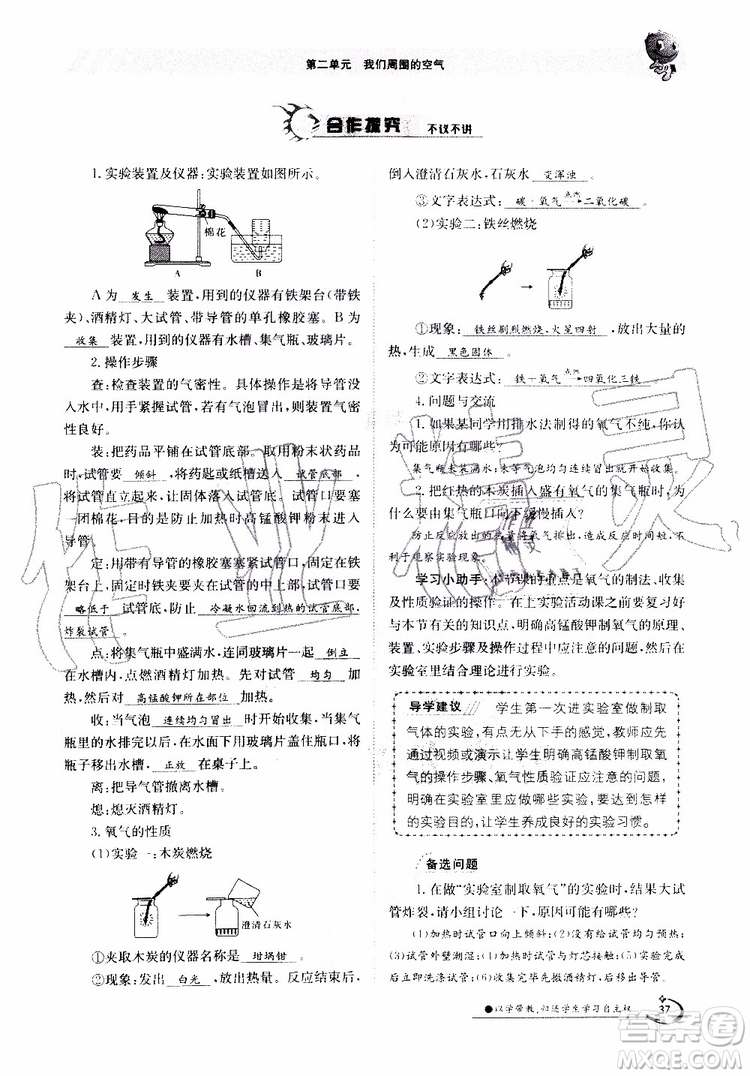 第二单元 我们周围的空气
合作探究 不议不讲
1.实验装置及仪器:实验装置如图所示。
棉花
A
B
A为 发生 装置,用到的仪器有铁架台(带铁
夹)、酒精灯、大试管、带导管的单孔橡胶塞。B为
收集 装置,用到的仪器有水槽、集气瓶、玻璃片。
2.操作步骤
查:检查装置的气密性。具体操作是将导管没
入水中,用手紧握试管,有气泡冒出,证明装置气密
性良好。
装:把药品平铺在试管底部。用粉末状药品时
要把试管 倾斜 ,将药匙或纸槽放入 试管底部 ,将
试管直立起来,让固体落入试管底部。试管口要塞
一团棉花,目的是防止加热时高锰酸钾粉末进入
导管。
定:用带有导管的橡胶塞塞紧试管口,固定在铁
架台上,固定时铁夹夹在试管的中上部,试管口要
略低于 试管底部,防止 冷凝水回流到热的试管底部,
炸裂试管 。
点:将集气瓶中盛满水,连同玻璃片一起 倒立
在水槽内,点燃酒精灯加热。先对试管 均匀 加
热,然后对 高锰酸钾所在部位 加热。
收:当气泡 连续均匀冒出 时开始收集,当集气
瓶里的水排完以后,在水面下用玻璃片盖住瓶口,将
瓶子移出水槽, 正放 在桌子上。
离:把导气管撤离水槽。
熄:熄灭酒精灯。
3.氧气的性质
(1)实验一:木炭燃烧
澄清石灰水
①夹取木炭的仪器名称是 坩埚钳 。
②现象:发出 白光 ,放出热量。反应结束时,
倒入澄清石灰水,石灰水 变浑浊 。
③文字表达式: 碳+氧气 点燃→ 二氧化碳 。
(2)实验二:铁丝燃烧
①现象: 铁丝剧烈燃烧,火星四射 ,放出大量的
热,生成 黑色固体 。
②文字表达式: 铁+氧气 点燃→ 四氧化三铁 。
4.问题与交流
1.如果某同学用排水法制得的氧气不纯,你认
为可能原因有哪些?
集气瓶未装满水;未等气泡均匀连续冒出就开始收集。
2.把红热的木炭插入盛有氧气的集气瓶时,为
什么要由集气瓶口向下缓慢插入?
防止反应放出的热量将氧气排出,造成反应时间太短,不
利于观察实验现象。
学习小助手:本节课的重点是氧气的制法、收集
及性质验证的基本操作。在上实验活动课之前要复习好
与本节有关的知识点,明确高锰酸钾制氧气的原理、
装置、实验步骤及操作过程中应注意的问题,然后在
实验室里结合理论进行实验。
导学建议 学生第一次进实验室做制取
气体的实验,有点无从下手的感觉,教师应先
通过视频或演示让学生明确高锰酸钾制取氧
气的操作步骤、氧气性质验证应注意的问题,
明确在实验室里应做哪些实验,本实验的
目的,让学生养成良好的实验习惯。
备选问题
1.在做“实验室制取氧气”的实验时,结果大试
管炸裂,请小组讨论一下,原因可能有哪些?
(1)加热时试管口向上倾斜;(2)加热时试管没有均匀预热;
(3)试管外壁潮湿;(4)加热时试管与灯芯接触;(5)加热反应
后立即洗涤试管;(6)收集完毕先撤酒精灯,后移出导管。
●以学带教,归还学生学习自主权
37
作业精灵
MXQE.COM